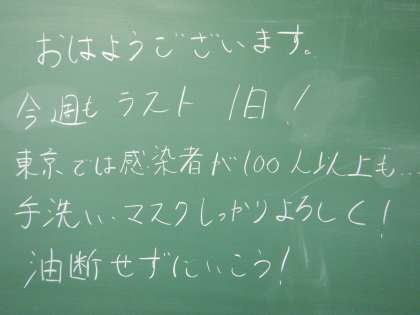 おはようございます。
今週もラスト1日!
東京では感染者が100人以上も…
手洗い・マスクしっかりよろしく!
油断せずにいこう!